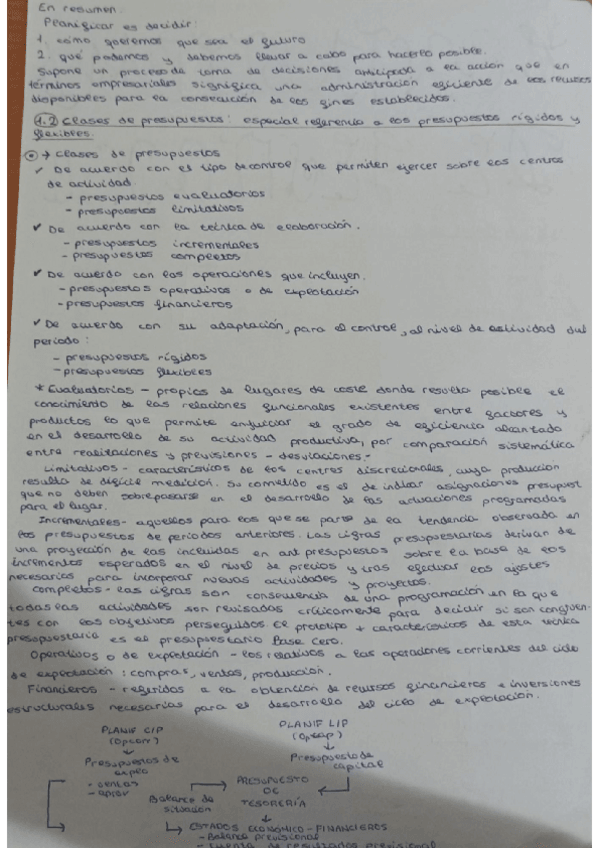 En resumen.
Planificar es decidir:
1. cómo queremos que sea el futuro
2. qué podemos y debemos llevar a cabo para hacerlo posible.
Supone un proceso de toma de decisiones anticipada a la acción que en
términos empresariales significa una administración eficiente de los recursos
disponibles para la consecución de los fines establecidos.
1.2 Clases de presupuestos: especial referencia a los presupuestos rígidos y
flexibles.
→ Clases de presupuestos
✓ De acuerdo con el tipo de control que permiten ejercer sobre los centros
de actividad.
- presupuestos evaluatorios
- presupuestos limitativos
✓ De acuerdo con la técnica de elaboración.
- presupuestos incrementales
- presupuestos completos
✓ De acuerdo con las operaciones que incluyen.
- presupuestos operativos o de explotación
- presupuestos financieros
✓ De acuerdo con su adaptación, para el control, al nivel de actividad del
periodo:
- presupuestos rígidos
- presupuestos flexibles
* Evaluatorios - propios de lugares de coste donde resulta posible el
conocimiento de las relaciones funcionales existentes entre factores y
productos lo que permite enjuiciar el grado de eficiencia alcanzado
en el desarrollo de su actividad productiva, por comparación sistemática
entre realizaciones y previsiones - desviaciones -
Limitativos - característicos de los centros discrecionales, cuya producción
resulta de difícil medición. Su cometido es el de indicar asignaciones presupuest
que no deben sobrepasarse en el desarrollo de las actuaciones programadas
para el lugar.
Incrementales - aquellos para los que se parte de la tendencia observada en
los presupuestos de periodos anteriores. Las cifras presupuestarias derivan de
una proyección de las incluidas en ant presupuestos sobre la base de los
incrementos esperados en el nivel de precios y tras efectuar los ajustes
necesarios para incorporar nuevas actividades y proyectos.
Completos - las cifras son consecuencia de una programación en la que
todas las actividades son revisadas críticamente para decidir si son congruen-
tes con los objetivos perseguidos. El prototipo + característicos de esta técnica
presupuestaria es el presupuestario Base Cero.
Operativos o de explotación - los relativos a las operaciones corrientes del ciclo
de explotación: compras, ventas, producción.
Financieros - referidos a la obtención de recursos financieros e inversiones
estructurales necesarias para el desarrollo del ciclo de explotación.
PLANIF C/P PLANIF L/P
(Opcorr) (Opcap)
Presupuestos de Presupuesto de
explo capital
- ventas PRESUPUESTO
- aprov Balance de DE
situación TESORERÍA
ESTADOS ECONÓMICO-FINANCIEROS
- Balance previsional
- Cuenta de resultados previsional